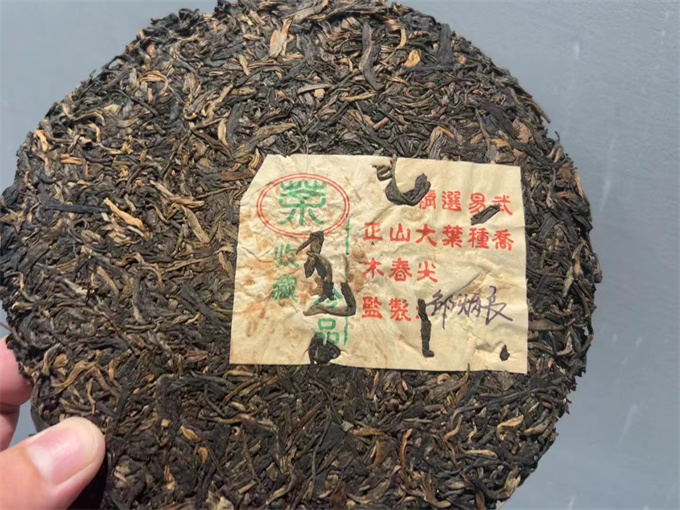 茶
收藏
珍品
精選易武
正山大葉種喬
木春尖
監製：邱炳良